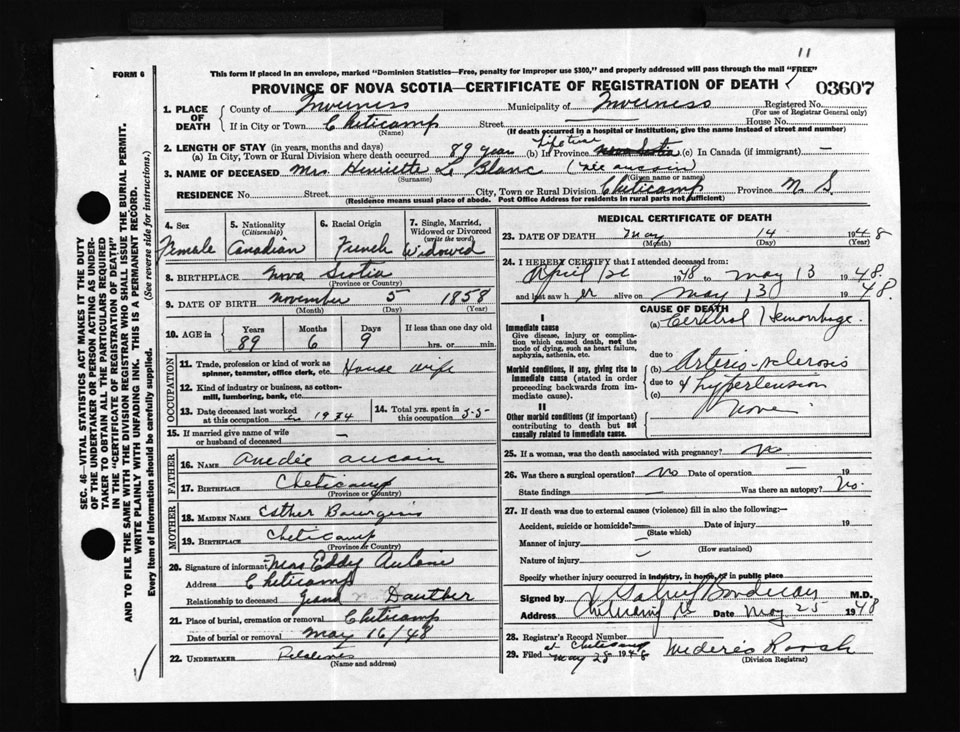 11
FORM 6
This form if placed in an envelope, marked "Dominion Statistics—Free, penalty for improper use $300," and properly addressed will pass through the mail "FREE"
PROVINCE OF NOVA SCOTIA—CERTIFICATE OF REGISTRATION OF DEATH
03607
1. PLACE OF DEATH
County of Inverness Municipality of Inverness Registered No.
(For use of Registrar General only)
If in City or Town Cheticamp Street House No.
(Name) (If death occurred in a hospital or institution, give the name instead of street and number)
2. LENGTH OF STAY (in years, months and days)
(a) In City, Town or Rural Division where death occurred 89 years (b) In Province Life time Nova Scotia (c) In Canada (if immigrant) —
3. NAME OF DECEASED Mrs Henriette Le Blanc
(Surname) (Given name or names)
RESIDENCE No. Street City, Town or Rural Division Cheticamp Province N. S.
(Residence means usual place of abode. Post Office Address for residents in rural parts not sufficient)
4. Sex
Female
5. Nationality
(Citizenship)
Canadian
6. Racial Origin
French
7. Single, Married, Widowed or Divorced
(write the word)
Widowed
8. BIRTHPLACE Nova Scotia
(Province or Country)
9. DATE OF BIRTH November 5 1858
(Month) (Day) (Year)
10. AGE in Years Months Days If less than one day old
89 6 9 hrs. or min.
OCCUPATION
11. Trade, profession or kind of work as spinner, teamster, office clerk, etc. House wife
12. Kind of industry or business, as cotton-mill, lumbering, bank, etc.
13. Date deceased last worked at this occupation in 1934
14. Total yrs. spent in this occupation 55
15. If married give name of wife or husband of deceased —
FATHER
16. NAME Amedée Aucoin
17. BIRTHPLACE Cheticamp
(Province or Country)
MOTHER
18. MAIDEN NAME Esther Bourgeois
19. BIRTHPLACE Cheticamp
(Province or Country)
20. Signature of informant Mrs Eddy AuCoin
Address Cheticamp
Relationship to deceased Grand Dauther
21. Place of burial, cremation or removal Cheticamp
Date of burial or removal May 16/48
22. UNDERTAKER Relatives
(Name and address)
MEDICAL CERTIFICATE OF DEATH
23. DATE OF DEATH May 14 1948
(Month) (Day) (Year)
24. I HEREBY CERTIFY that I attended deceased from:
April 1st 1948 to May 13 1948.
and last saw her alive on May 13 1948.
CAUSE OF DEATH
I
Immediate cause
Give disease, injury or complication which caused death, not the mode of dying, such as heart failure, asphyxia, asthenia, etc.
(a) Cerebral Hemorrhage.
due to
Morbid conditions, if any, giving rise to immediate cause (stated in order proceeding backwards from immediate cause).
(b) Arterio-sclerosis
due to & hypertension
(c)
II
Other morbid conditions (if important) contributing to death but not causally related to immediate cause.
None.
25. If a woman, was the death associated with pregnancy? No
26. Was there a surgical operation? No Date of operation — 19
State findings — Was there an autopsy? No.
27. If death was due to external causes (violence) fill in also the following:—
Accident, suicide or homicide? — Date of injury 19
(State which)
Manner of injury —
(How sustained)
Nature of injury —
Specify whether injury occurred in industry, in home, or in public place
Signed by M.D.
Address Date May 25 1948
28. Registrar's Record Number
29. Filed at Cheticamp May 28 1948
(Division Registrar)
SEC. 46—VITAL STATISTICS ACT MAKES IT THE DUTY OF THE UNDERTAKER OR PERSON ACTING AS UNDERTAKER TO OBTAIN ALL THE PARTICULARS REQUIRED IN THE "CERTIFICATE OF REGISTRATION OF DEATH" AND TO FILE THE SAME WITH THE DIVISION REGISTRAR WHO SHALL ISSUE THE BURIAL PERMIT.
WRITE PLAINLY WITH UNFADING INK. THIS IS A PERMANENT RECORD.
Every item of Information should be carefully supplied. (See reverse side for instructions.)